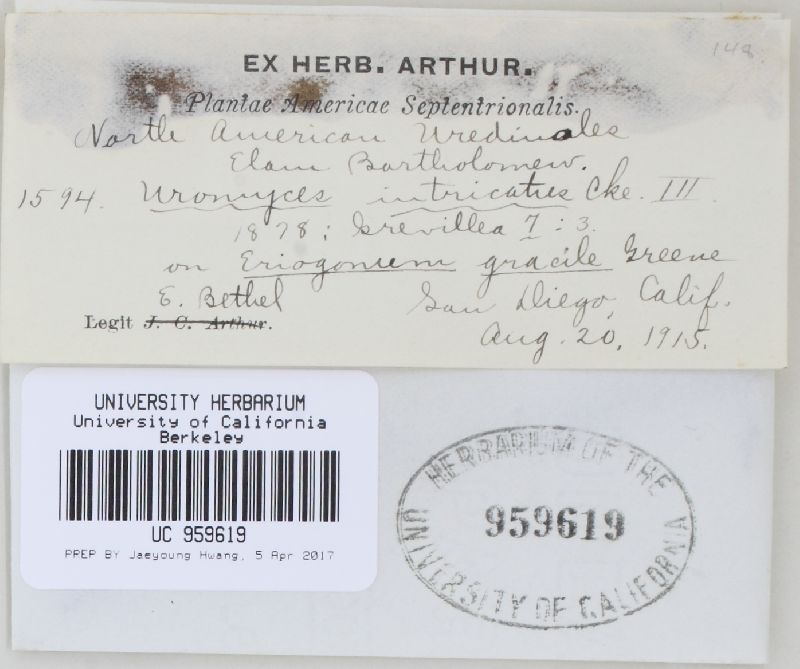 148
EX HERB. ARTHUR.
Plantae Americae Septentrionalis.
North American Uredinales
Elam Bartholomew.
1594. Uromyces intricatus Cke. III.
1878; Grevillea 7:3.
on Eriogonum gracile Greene
E. Bethel San Diego, Calif.
Legit J. C. Arthur.
Aug. 20, 1915.
UNIVERSITY HERBARIUM
University of California
Berkeley
UC 959619
PREP BY Jaeyoung Hwang, 5 Apr 2017
HERBARIUM OF THE
959619
UNIVERSITY OF CALIFORNIA